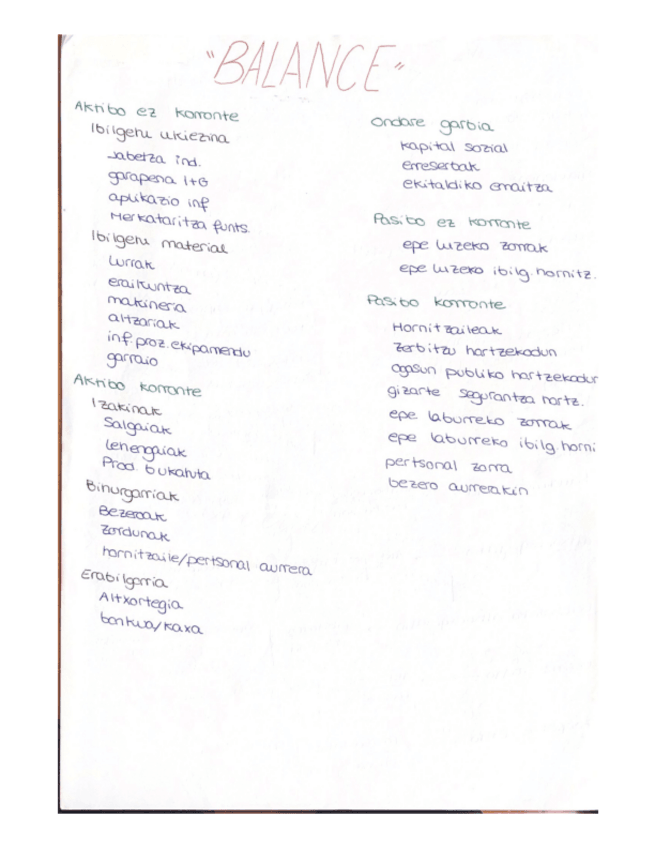 "BALANCE"
Aktibo ez korronte
Ibilgetu ukiezina
Jabetza ind.
garapena I+G
aplikazio inf
Merkataritza funts.
Ibilgetu material
Lurrak
eraikuntza
makineria
altzariak
inf.proz.ekipamendu
garraio
Aktibo korronte
Izakinak
Salgaiak
Lehengaiak
Prod. bukatuta
Bihurgarriak
Bezeroak
Zordunak
hornitzaile/pertsonal aurrera
Erabilgarria
Altxortegia
bankua/kaxa
Ondare garbia
kapital sozial
erreserbak
ekitaldiko emaitza
Pasibo ez korronte
epe luzeko zorrak
epe luzeko ibilg.hornitz.
Pasibo korronte
Hornitzaileak
Zerbitzu hartzekodun
ogasun publiko hartzekodur
gizarte segurantza hartz.
epe laburreko zorrak
epe laburreko ibilg.horni
pertsonal zorra
bezero aurrerakin